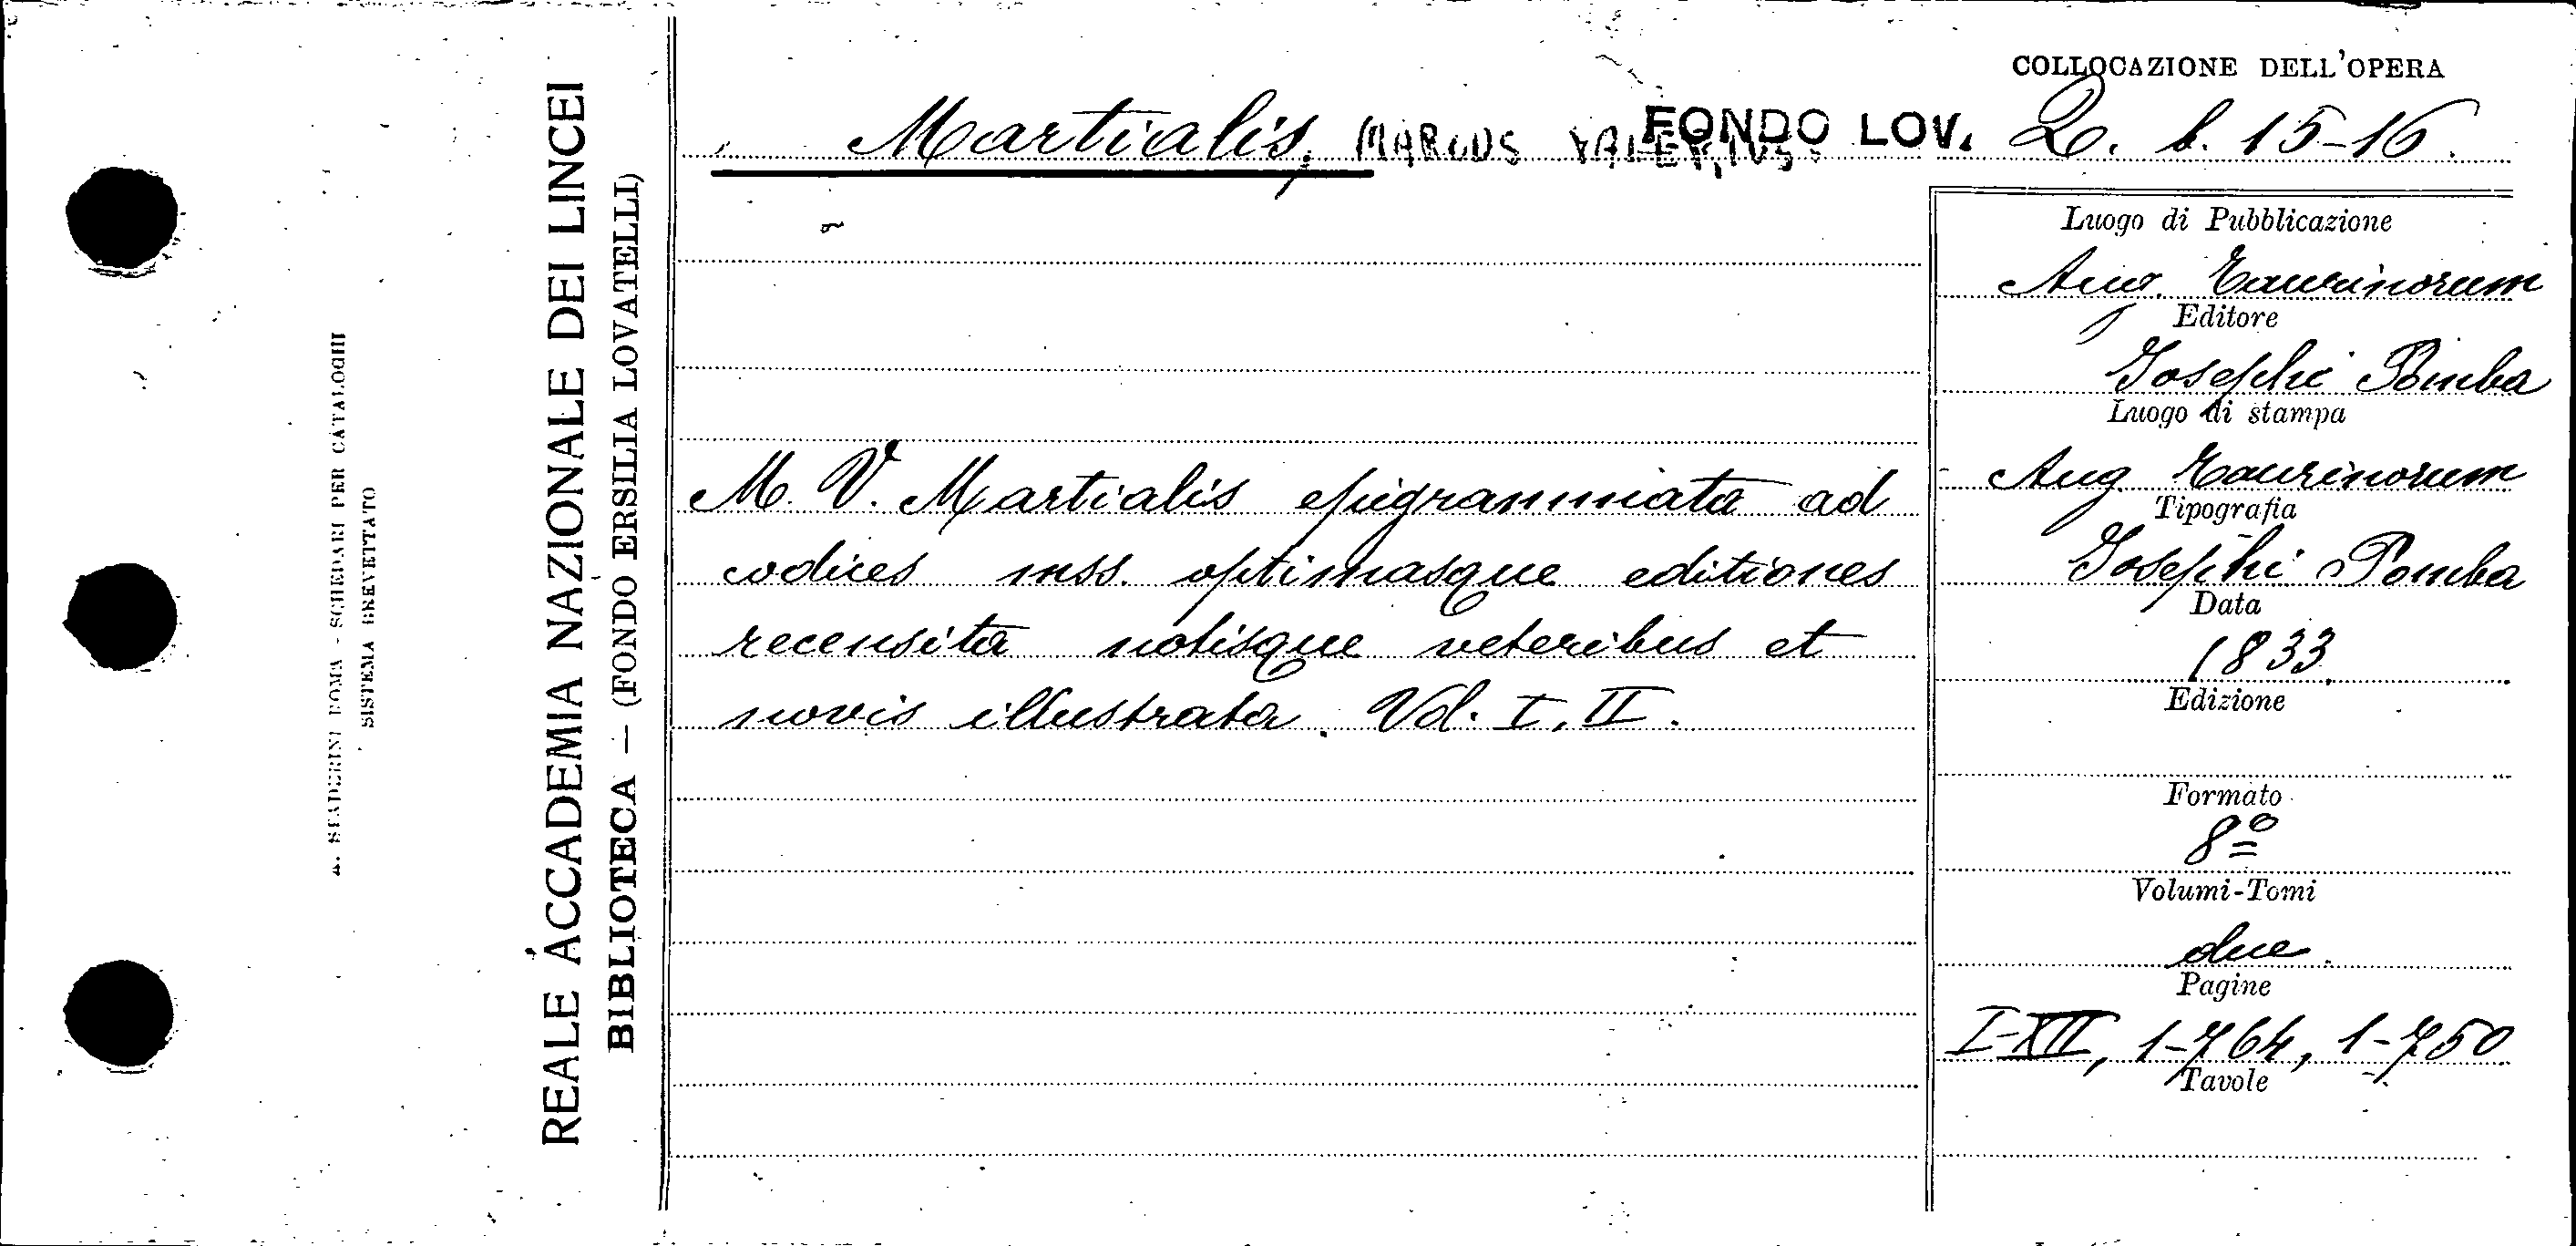 A. STADERINI ROMA - SCHEDARI PER CATALOGHI
SISTEMA BREVETTATO
REALE ACCADEMIA NAZIONALE DEI LINCEI
BIBLIOTECA — (FONDO ERSILIA LOVATELLI)
COLLOCAZIONE DELL'OPERA
Martialis, MARCUS VALERIUS FONDO LOV. Q. b. 15-16.
M. V. Martialis epigrammata ad
codices mss. optimasque editiones
recensita notisque veteribus et
novis illustrata. Vol. I, II.
Luogo di Pubblicazione
Aug. Taurinorum
Editore
Josephi Pomba
Luogo di stampa
Aug Taurinorum
Tipografia
Josephi Pomba
Data
1833.
Edizione
Formato
8º
Volumi-Tomi
due.
Pagine
I-XII, 1-764, 1-750
Tavole